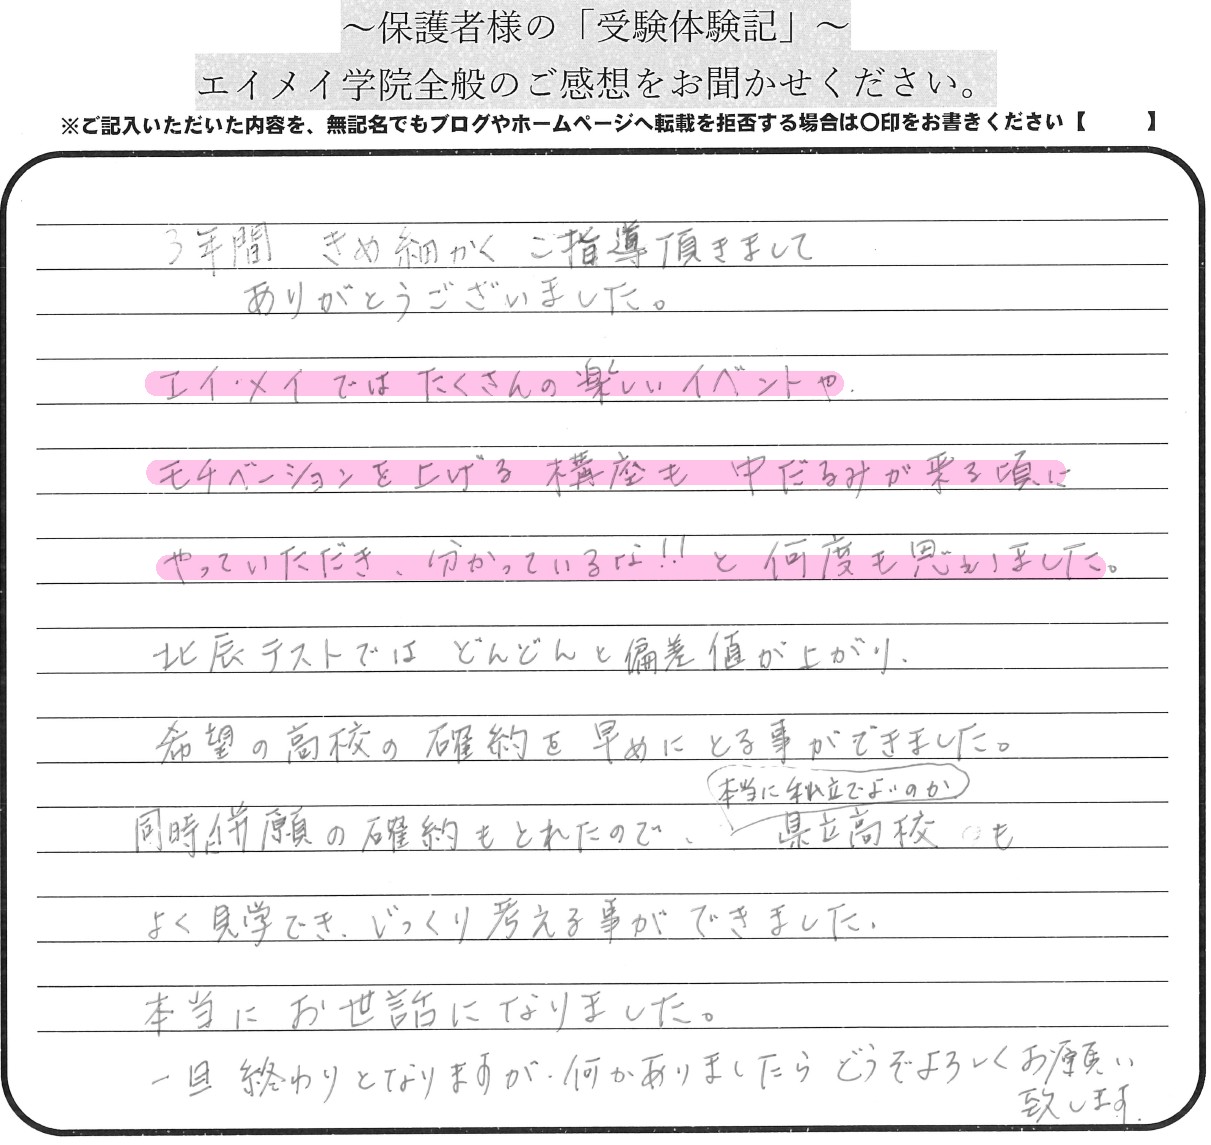 ～保護者様の「受験体験記」～
エイメイ学院全般のご感想をお聞かせください。
※ご記入いただいた内容を、無記名でもブログやホームページへ転載を拒否する場合は〇印をお書きください【　　　】
3年間　きめ細かく　ご指導頂きまして
ありがとうございました。
エイ・メイでは たくさんの 楽しい イベントや
モチベーションを上げる 構座も 中だるみが来る頃に
やっていただき、分かっているな!! と 何度も思いました。
北辰テストでは どんどんと偏差値が上がり、
希望の高校の 確約を 早めに とる事ができました。
本当に私立でよいのか
同時併願の確約もとれたので、　県立高校も
よく見学でき、じっくり考える事ができました。
本当に お世話になりました。
一旦 終わりとなりますが、何かありましたら どうぞよろしくお願い
致します。